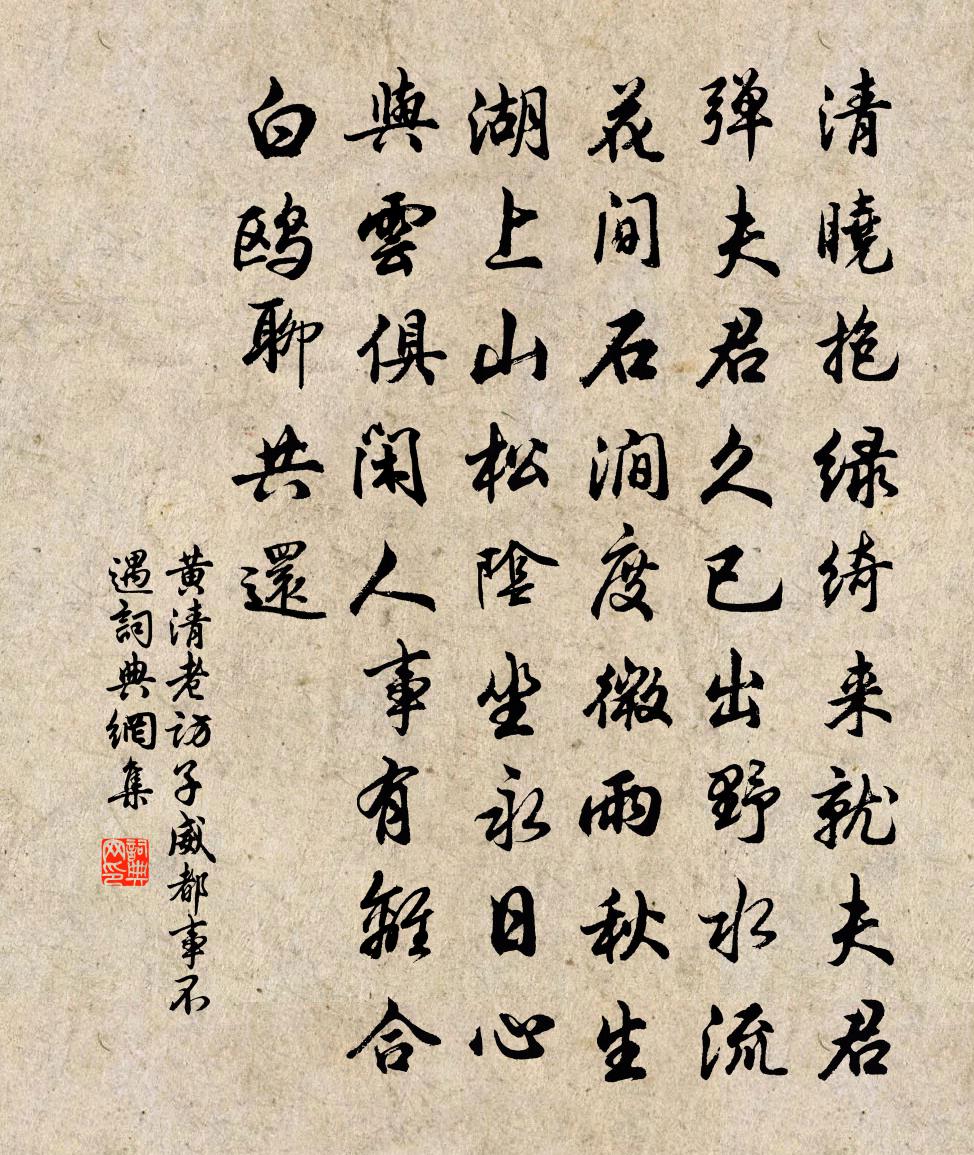 清曉抱绿綺来就夫君
弹夫君久已出野水流
花间石澗度微雨秋生
湖上山松陰坐永日心
與雲俱闲人事有離合
白鸥聊共還
黄清老访子威都事不
遇詞典網集
詞典
网印